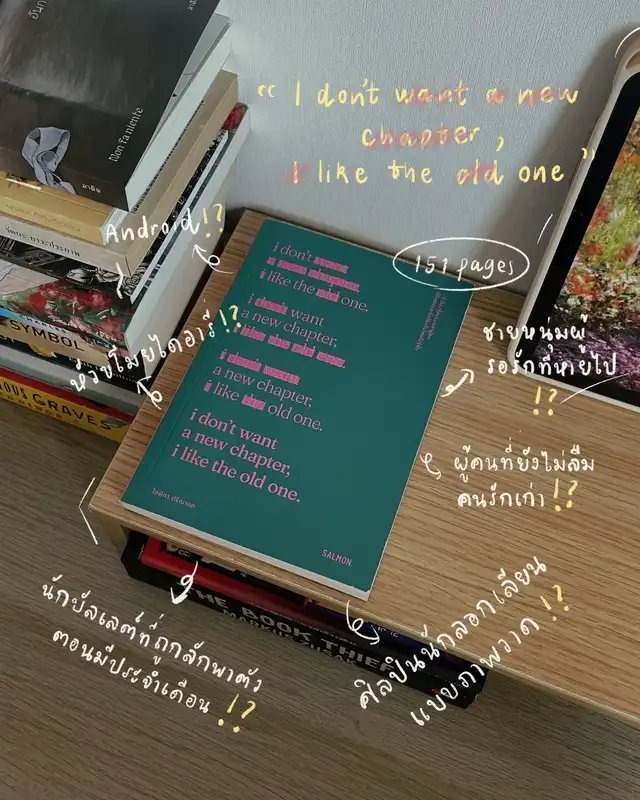 “ I don't want a new
chapter,
I like the old one ”
151 pages
Android!?
หัวขโมยไดอารี่!?
ชายหนุ่มผู้
รอรักที่หายไป
!?
ผู้คนที่ยังไม่ลืม
คนรักเก่า!?
ศิลปินนักลอกเลียน
แบบภาพวาด!?
นักบัลเลต์ที่ถูกลักพาตัว
ตอนมีประจำเดือน!?
i don't
i like the old one.
i don't want
a new chapter,
i
a new chapter,
i like old one.
i don't want
a new chapter,
i like the old one.
SALMON
Non fa niente
SYMBOL
GRAVES
THE BOOK THIEF
MARKUS ZUSAK